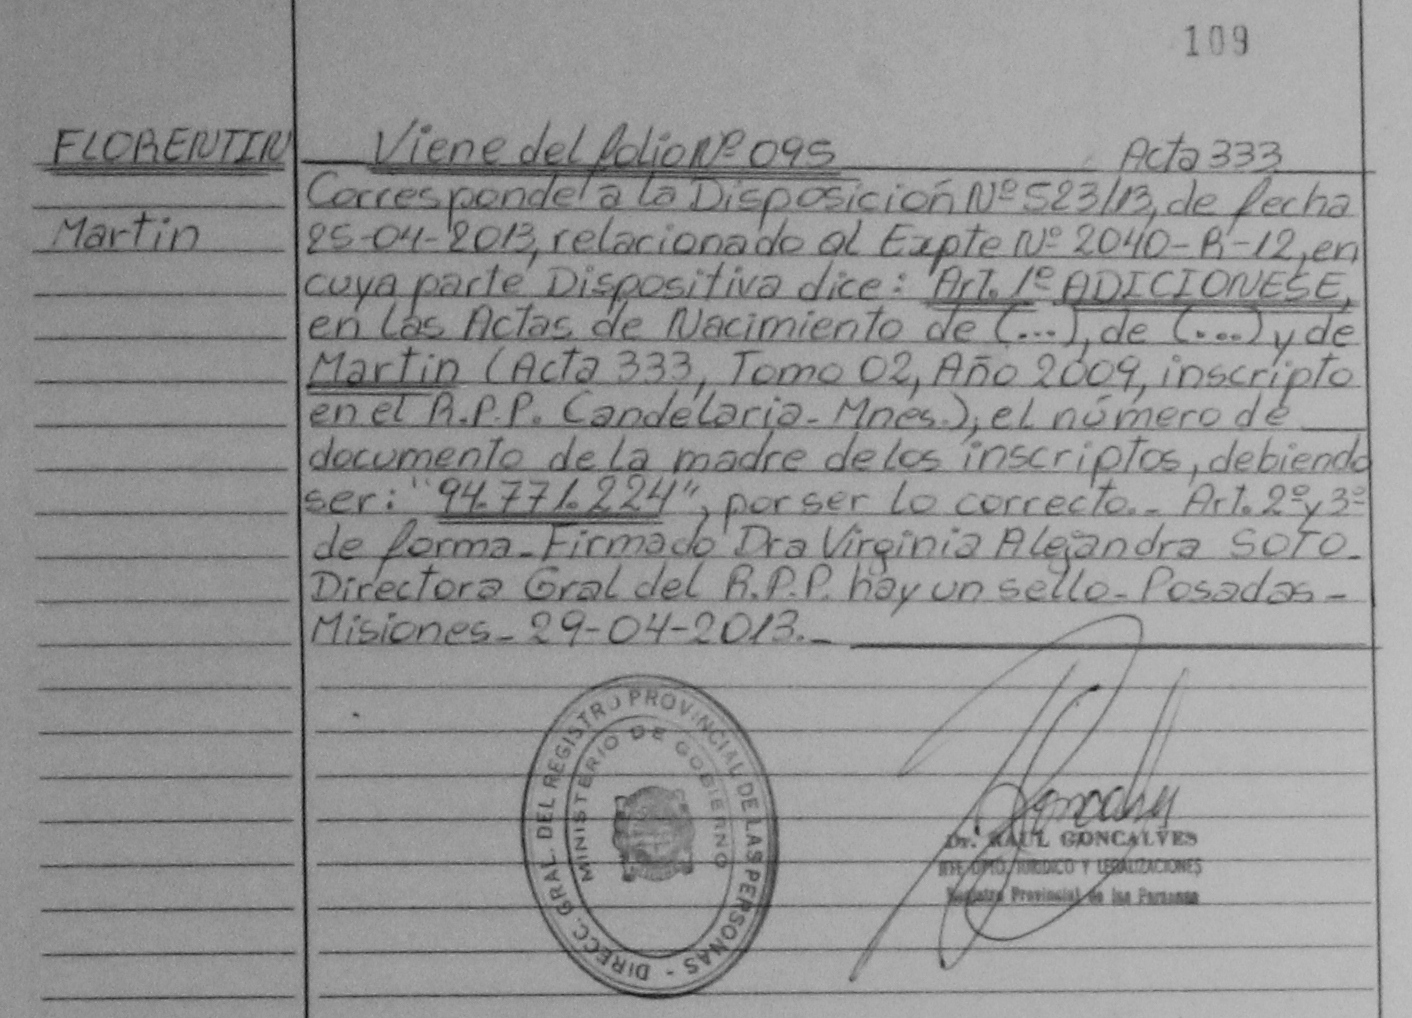 109
FLORENTIN
Martin
Viene del folio Nº 095 Acta 333
Corresponde a la Disposición Nº 523/13, de fecha
25-04-2013, relacionado al Expte Nº 2040-R-12, en
cuya parte Dispositiva dice: Art. 1º ADICIONESE,
en las Actas de Nacimiento de (...), de (...) y de
Martin (Acta 333, Tomo 02, Año 2009, inscripto
en el R.P.P. Candelaria-Mnes.), el número de
documento de la madre de los inscriptos, debiendo
ser: "94.771.224", por ser lo correcto.- Art. 2º y 3º
de forma-Firmado Dra Virginia Alejandra SOTO-
Directora Gral del R.P.P. hay un sello-Posadas-
Misiones-29-04-2013.-
DIRECC. GRAL. DEL REGISTRO PROVINCIAL DE LAS PERSONAS -
MINISTERIO DE GOBIERNO
Dr. RAUL GONCALVES
JEFE DPTO. JURIDICO Y LEGALIZACIONES
Registro Provincial de las Personas